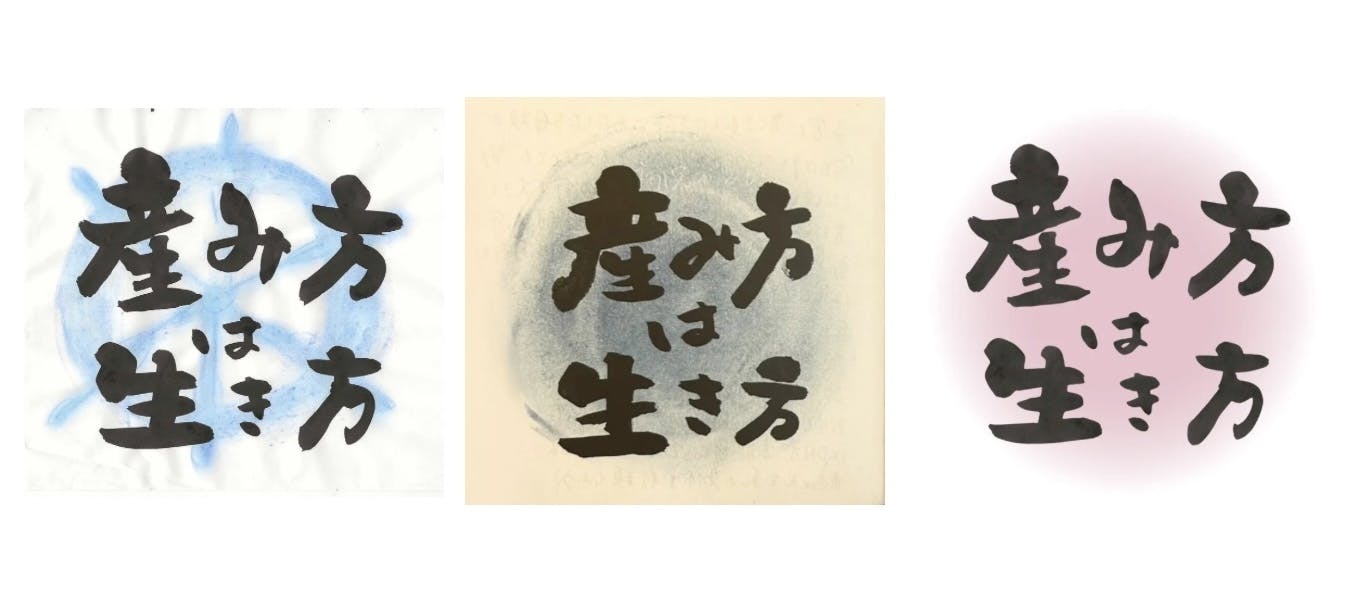 産み方
は
生き方
産み方
は
生き方
産み方
は
生き方